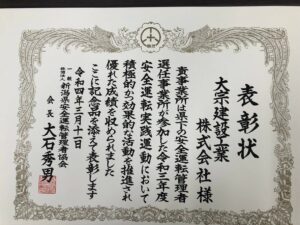 表彰状
大宗建設工業
株式会社 様
貴事業所は県下の安全運転管理者
選任事業所が参加した令和三年度
安全運転実践運動において
積極的かつ効果的な活動を推進され
優れた成績を収められました
ここに記念品を添えて表彰します
令和四年三月十一日
一般社団法人 新潟県安全運転管理者協会
会長 大石秀男